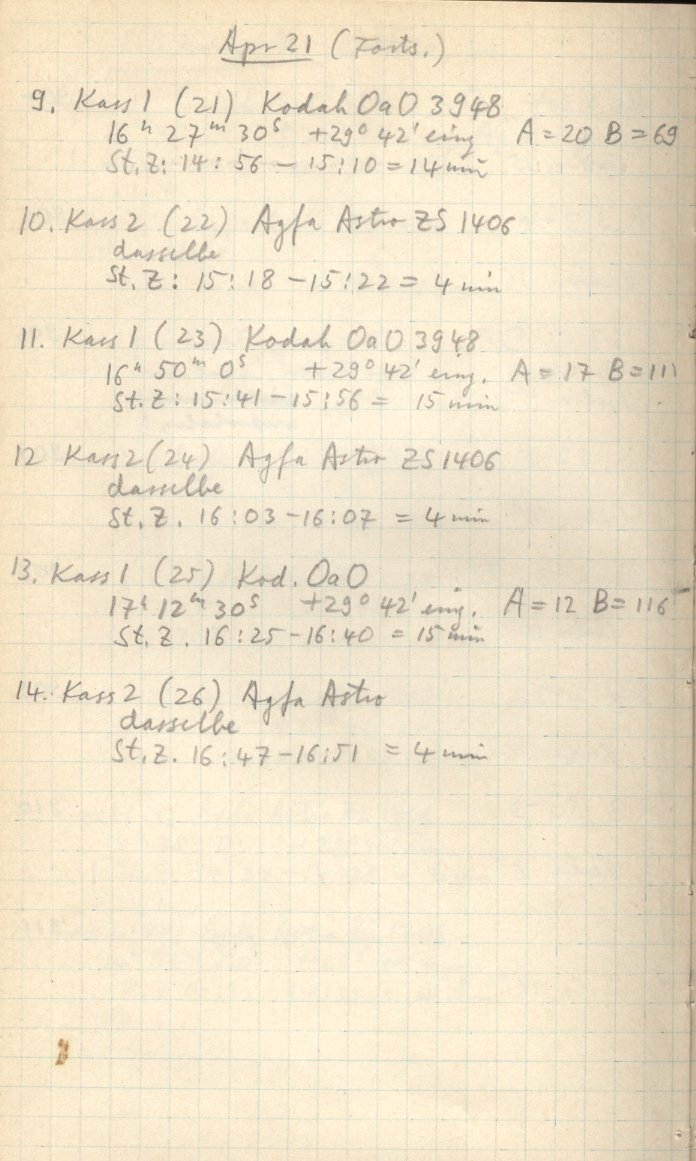 Apr 21 (Forts.)
9. Kass 1 (21) Kodak OaO 3948
16ʰ 27ᵐ 30ˢ +29° 42' eing A = 20 B = 69
St.Z: 14 : 56 – 15:10 = 14 min
10. Kass 2 (22) Agfa Astro ZS 1406
dasselbe
St. Z : 15:18 – 15:22 = 4 min
11. Kass 1 (23) Kodak OaO 3948
16ʰ 50ᵐ 0ˢ +29° 42' eing. A = 17 B = 111
St. Z : 15:41 – 15:56 = 15 min
12 Kass 2 (24) Agfa Astro ZS 1406
dasselbe
St. Z. 16:03 – 16:07 = 4 min
13. Kass 1 (25) Kod. OaO
17ʰ 12ᵐ 30ˢ +29° 42' eing. A = 12 B = 116
St. Z. 16:25 – 16:40 = 15 min
14. Kass 2 (26) Agfa Astro
dasselbe
St. Z. 16:47 – 16:51 = 4 min